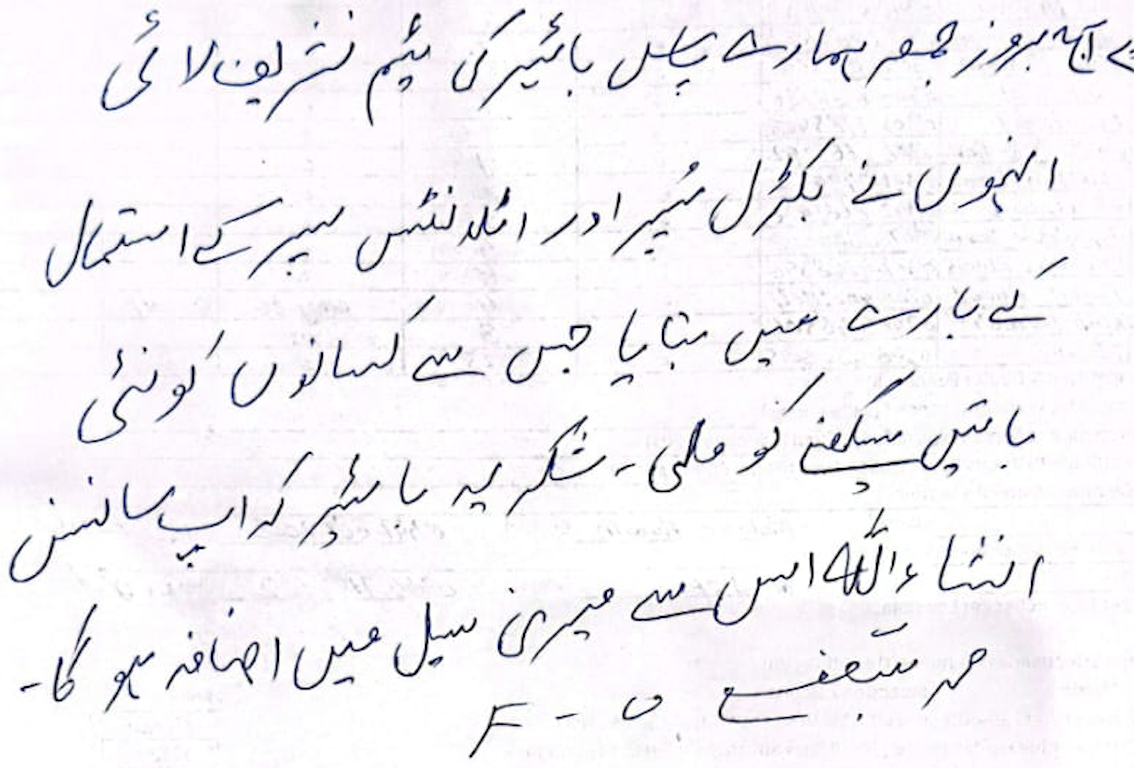 آج بروز جمعہ ہمارے پاس بائیر کی ٹیم تشریف لائی
انہوں نے فکڑل سپر اور اٹلانٹس سپر کے استمال
کے بارے میں بتایا جس سے کسانوں کو نئی
باتیں سیکھنے کو ملی - شکریہ بائیر کراپ سائنس
انشاءاللہ اس سے میری سیل میں اضافہ ہو گا -
محمد شفیع F - O